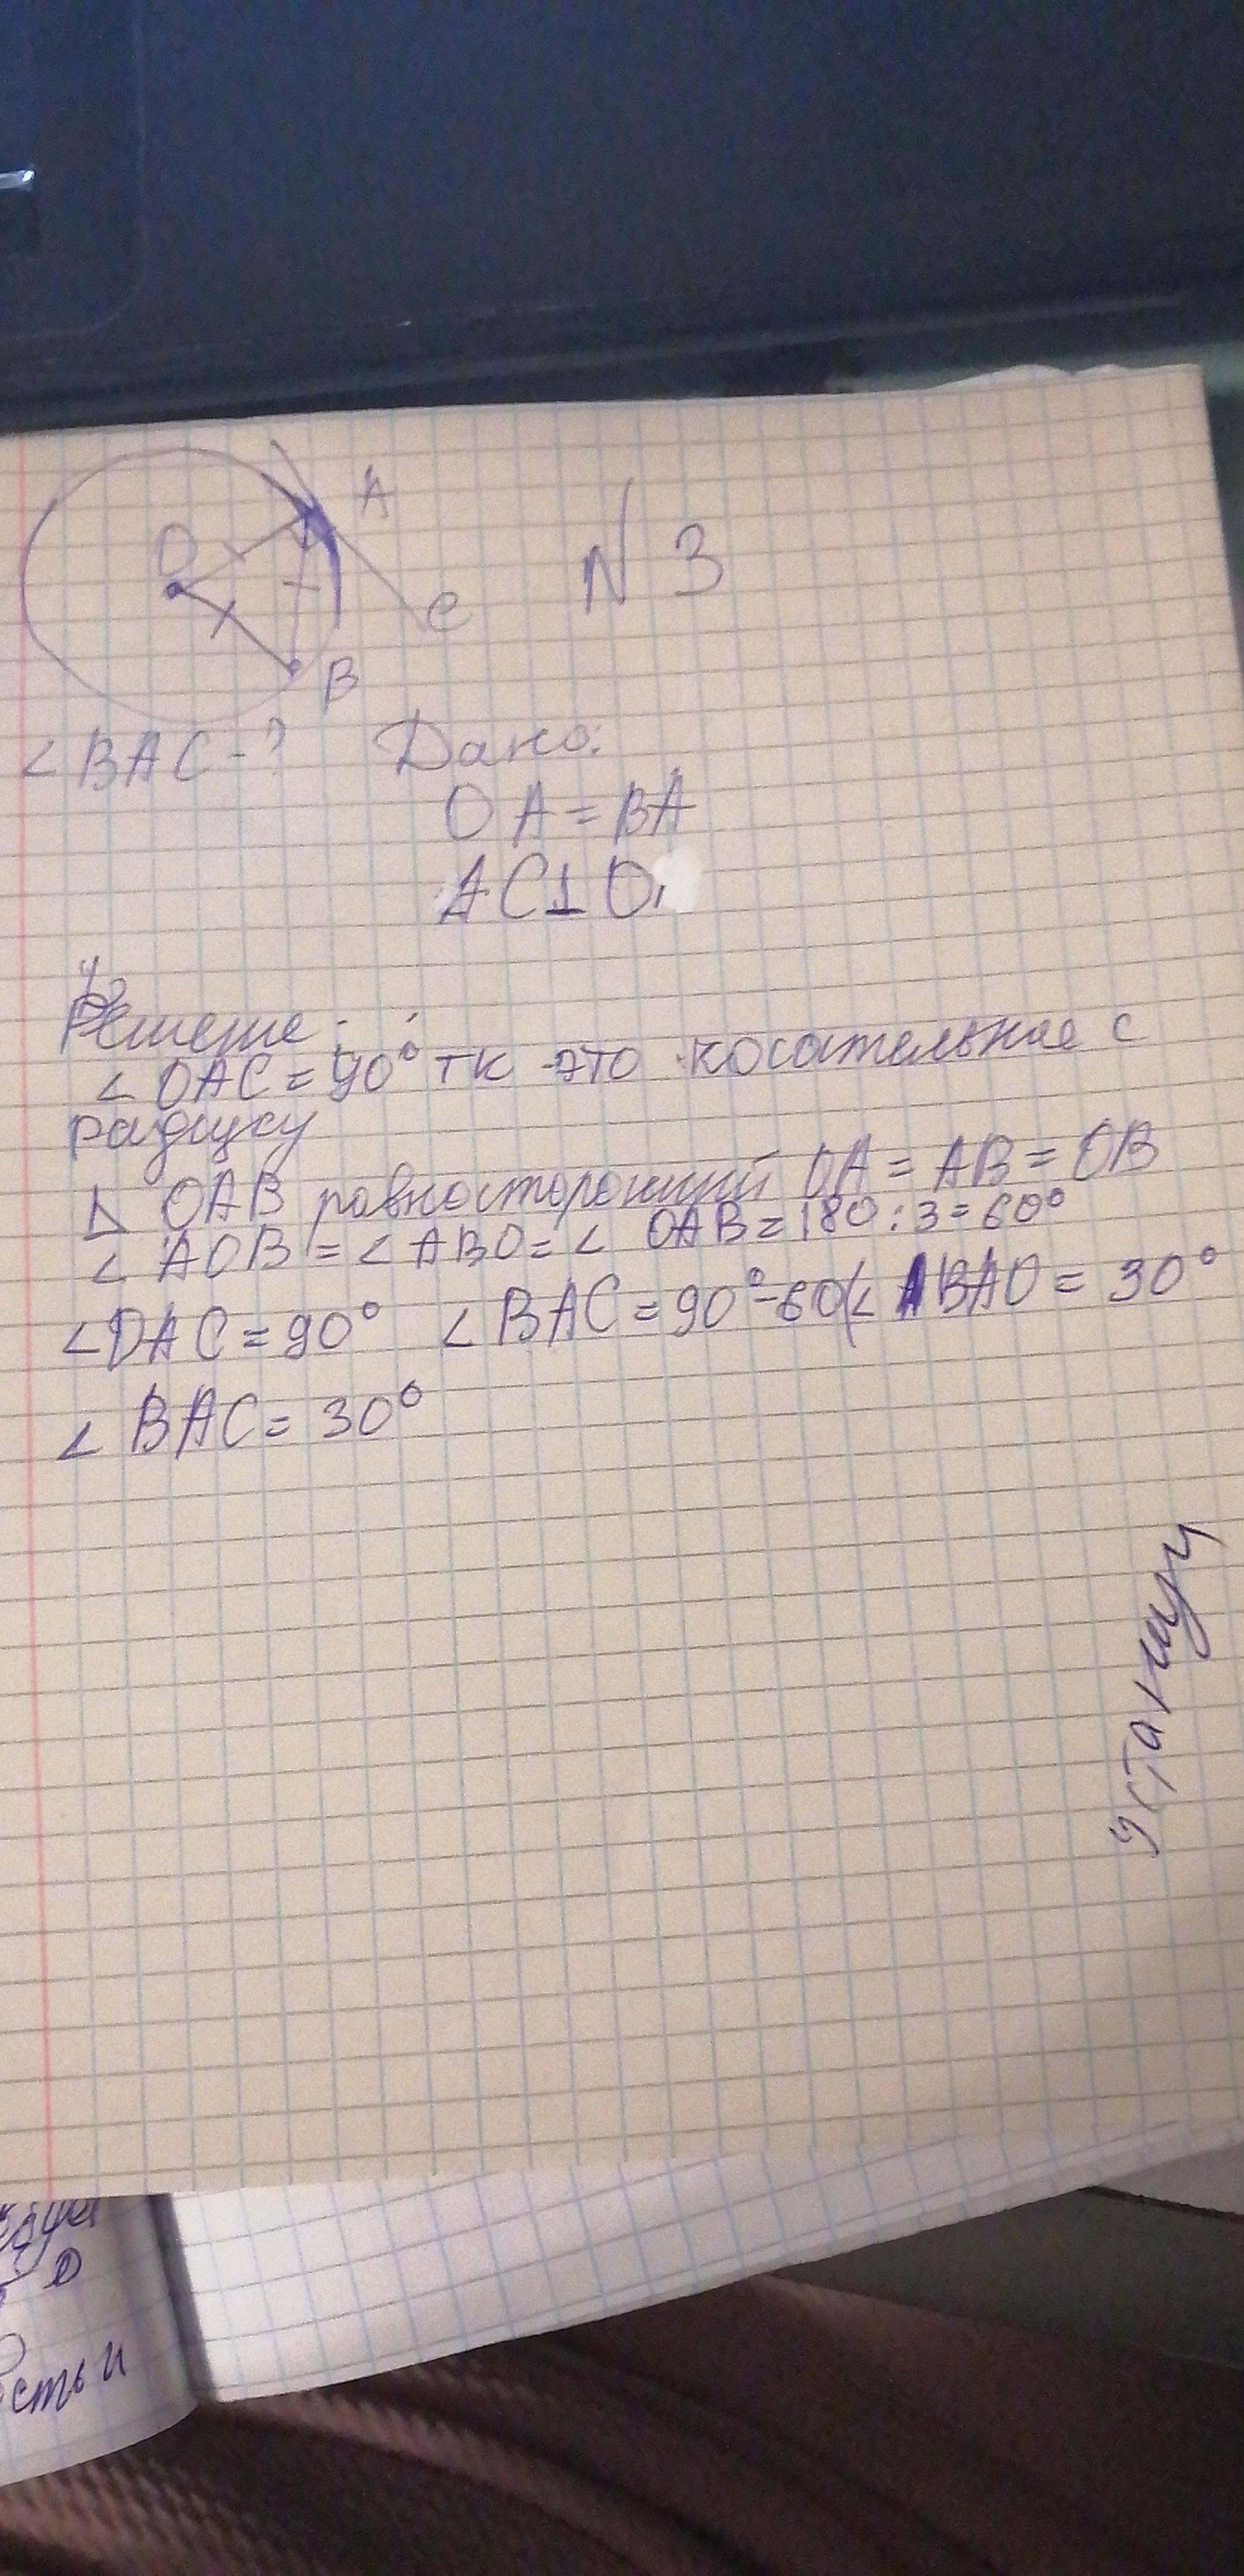 A
O
C
B
N 3
∠BAC-? Дано:
OA = BA
AC⊥O
Решение:
∠ OAC = 90° тк это косательная с
радиусу
△ OAB равносторонний OA = AB = OB
∠ AOB = ∠ ABO = ∠ OAB = 180:3=60°
∠OAC = 90° ∠ BAC = 90°-60(∠ BAO = 30°
∠ BAC = 30°
сть и